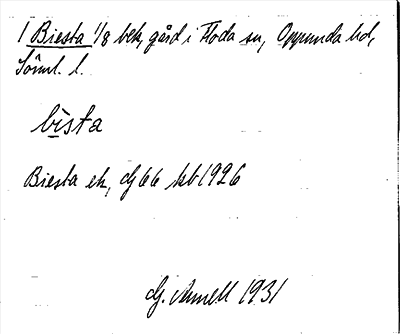 1 Biesta 1/8 bek, gård i Floda sn, Oppunda hd,
Söml. l.
bìsta
Biesta ek, dj 66 kb 1926
G. Armell 1931